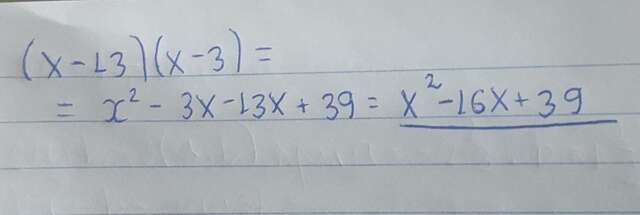 (x-13)(x-3)=
= x² - 3x-13x + 39 = x²-16x+39